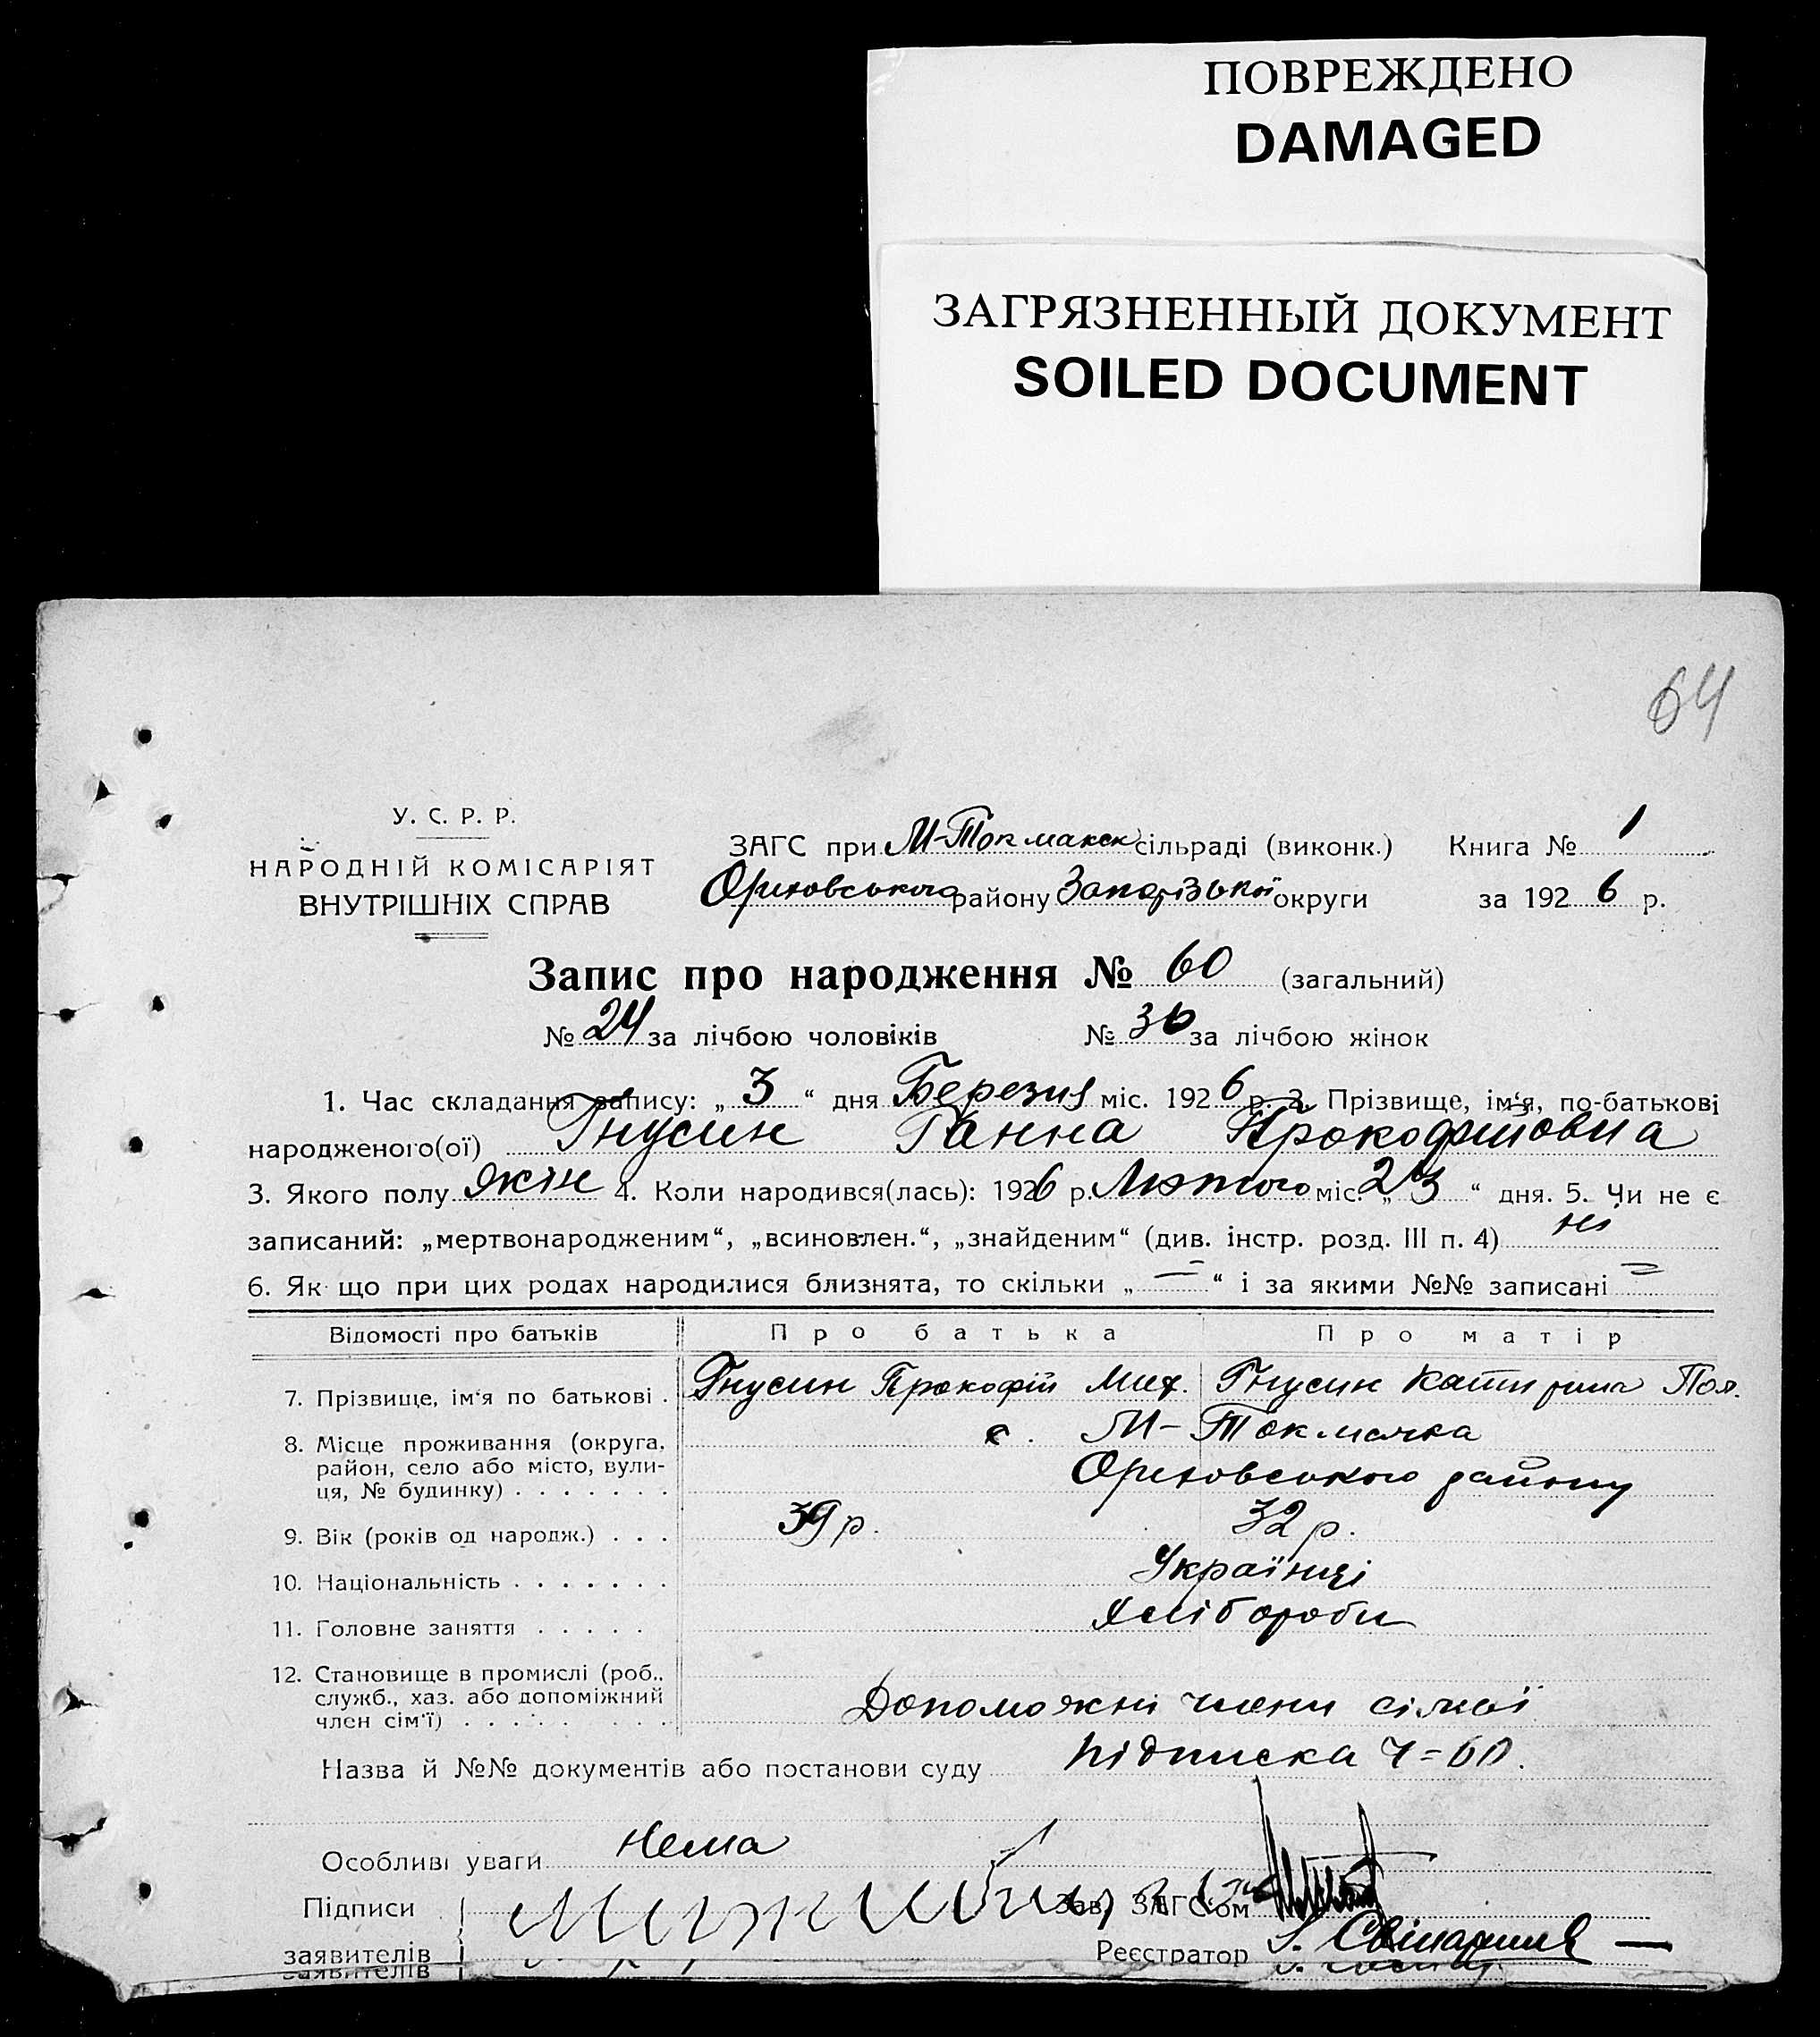 ПОВРЕЖДЕНО
DAMAGED
ЗАГРЯЗНЕННЫЙ ДОКУМЕНТ
SOILED DOCUMENT
64
У. С. Р. Р.
НАРОДНІЙ КОМІСАРІЯТ
ВНУТРІШНІХ СПРАВ
ЗАГС при М-Токмакск сільраді (виконк.) Книга № 1
Ориховського району Запорізької округи за 1926 р.
Запис про народження № 60 (загальний)
№ 24 за лічбою чоловіків № 36 за лічбою жінок
1. Час складання запису: „ 3 “ дня Березня міс. 1926 р. 2. Прізвище, ім‘я, по-батькові
народженого(ої) Гнусин Ганна Прокофійовна
3. Якого полу жін 4. Коли народився(лась): 1926 р. Лютого міс. „ 23 “ дня. 5. Чи не є
записаний: „мертвонародженим“, „всиновлен.“, „знайденим“ (див. інстр. розд. III п. 4) ні
6. Як що при цих родах народилися близнята, то скільки „ = “ і за якими №№ записані =
Відомості про батьків Про батька Про матір
7. Прізвище, ім‘я по батькові . Гнусин Прокофій Мих. Гнусин Катирина
8. Місце проживання (округа, с. М-Токмачка
район, село або місто, вули- Ориховського району
ця, № будинку) . . . . . . .
9. Вік (років од народж.) . . . 39 р. 32 р.
10. Національність . . . . . . . Українці
11. Головне заняття . . . . . Хлібороби
12. Становище в промислі (роб.,
служб., хаз. або допоміжний
член сім‘ї) . . . . . . . . . Допоможні члени сімьї
Назва й №№ документів або постанови суду підписка Ч=60.
Особливі уваги Нема
Підписи Зав. ЗАГС‘ом
заявителів Реєстратор
заявителів